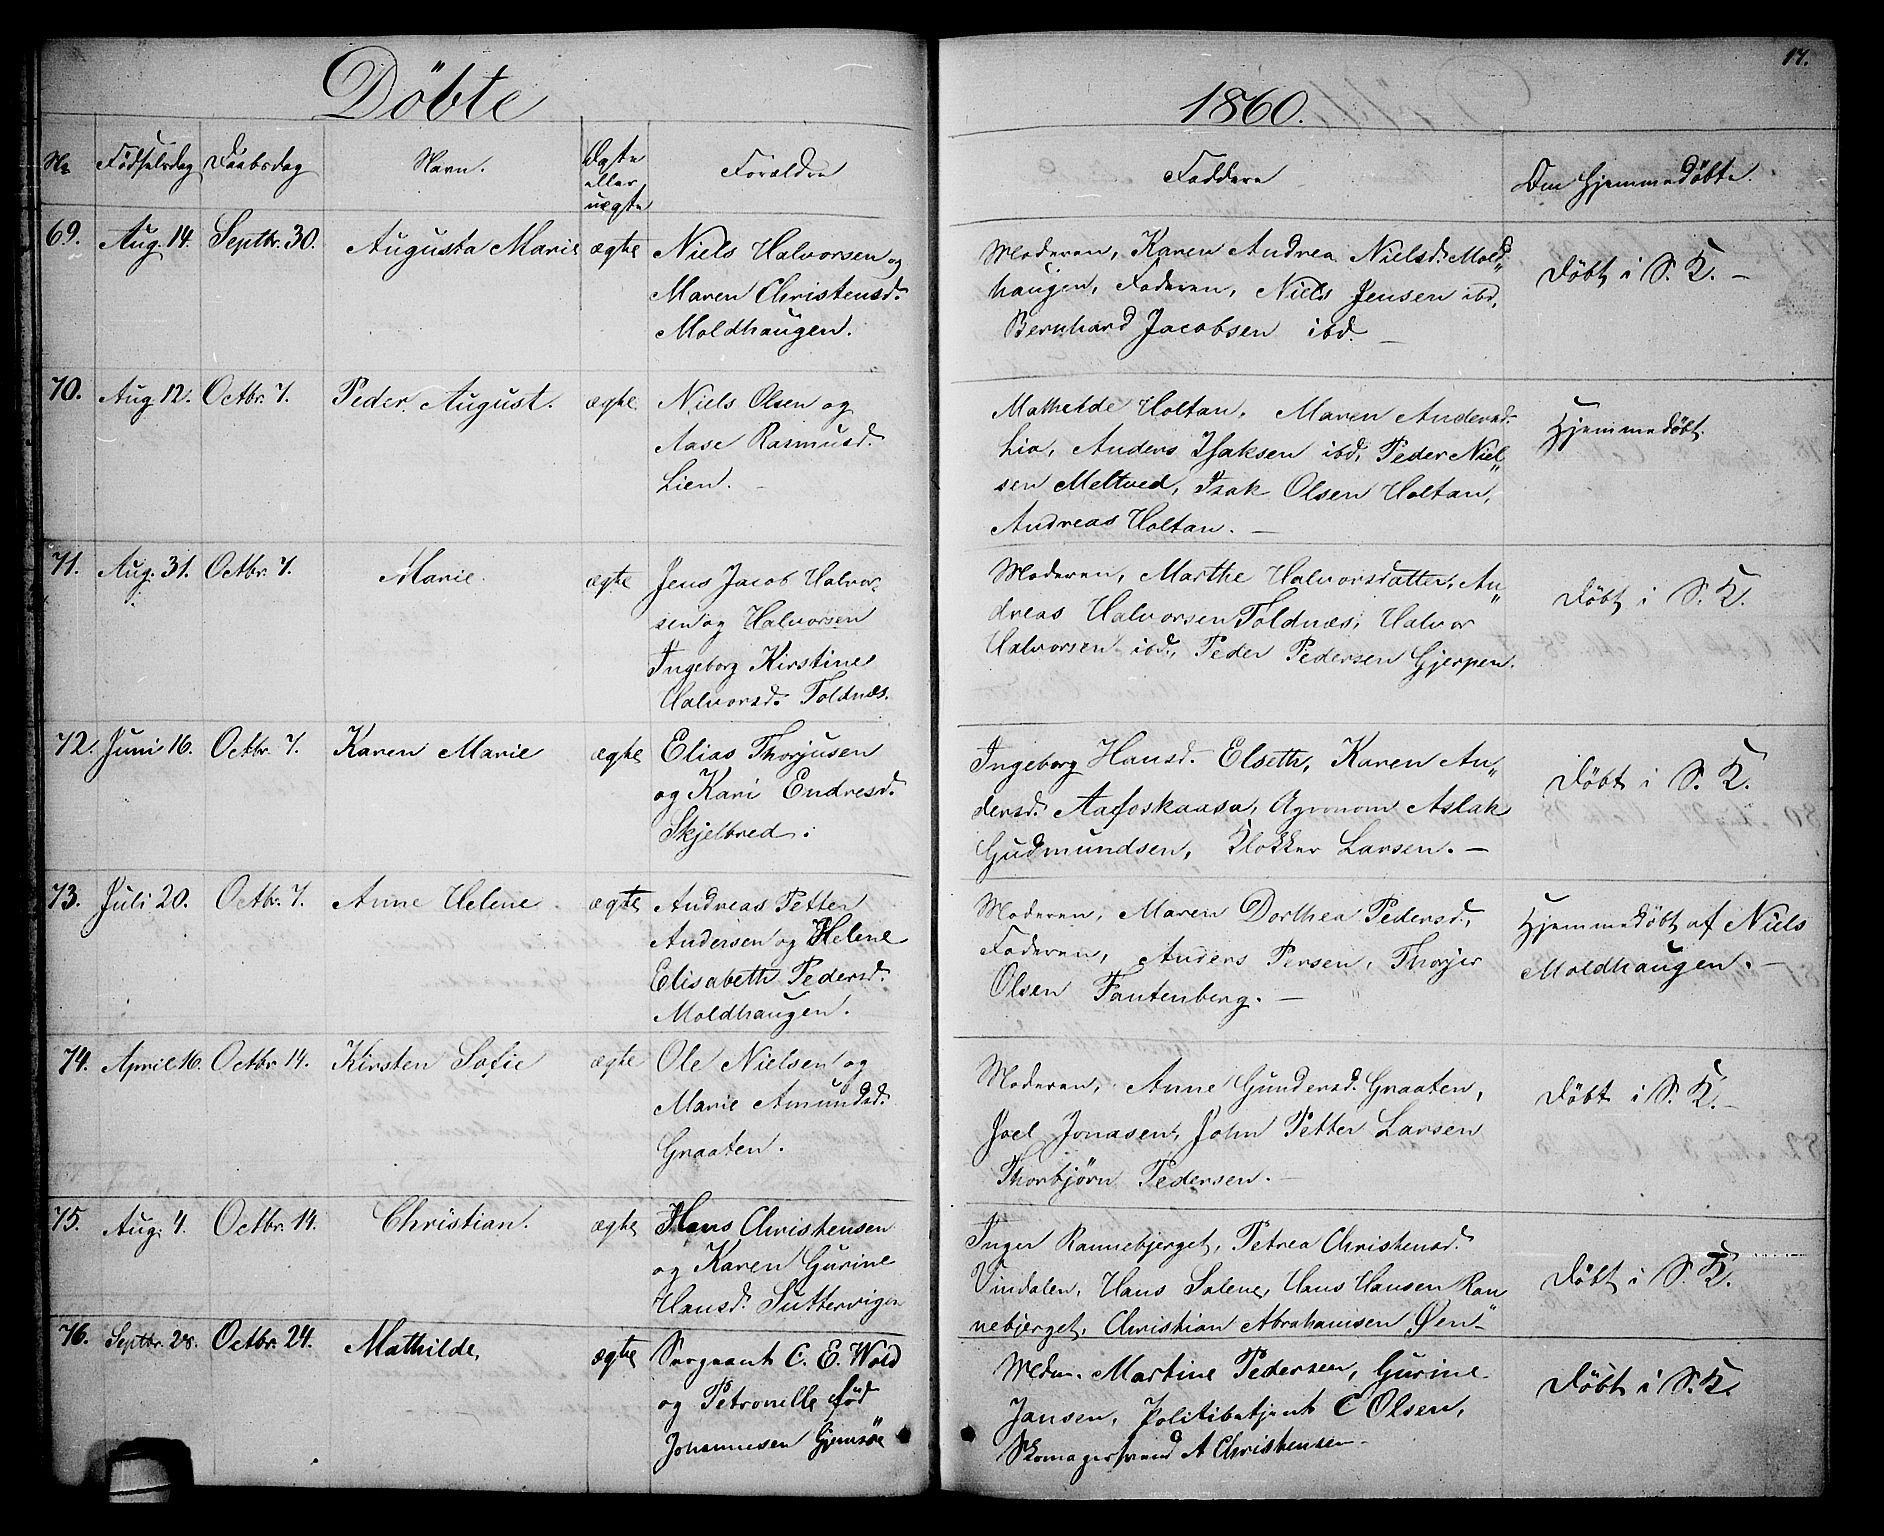 Döbte
1860.
17.
No Födselsdag Daabsdag Navn. Ægte eller uægte Forældre
Faddere Om Hjemmedöbte.
69. Aug. 14. Septbr. 30. Augusta Marie ægte Niels Halvorsen og
Maren Christensd.
Moldhaugen.
Moderen, Karen Andrea Nielsd. Mold„
haugen, Faderen, Niels Jensen ibd.
Bernhard Jacobsen ibd. —
Döbt i S. K. —
70. Aug. 12. Octbr. 7. Peder August. ægte Niels Olsen og
Aase Rasmusd.
Lien. —
Mathilde Holtan, Maren Andersd.
Lia, Anders Isaksen ibd, Peder Niel„
sen Meltved, Isak Olsen Holtan,
Andreas Holtan. —
Hjemmedöbt.
71. Aug. 31. Octbr. 7. Marie. ægte Jens Jacob Halvor„
sen og Halvorsen
Ingeborg Kirstine
Halvorsd. Toldnæs.
Moderen, Marthe Halvorsdatter, An„
dreas Halvorsen Toldnæs, Halvor
Halvorsen ibd., Peder Pedersen Gjerpen.
Döbt i S. K.
72. Juni 16. Octbr. 7. Karen Marie ægte Elias Thorjusen
og Kari Endresd.
Skjelbred.
Ingeborg Hansd. Elseth, Karen An„
dersd. Aafoskaasa, Agronom Aslak
Gudmundsen, Klokker Larsen. —
Döbt i S. K.
73. Juli 20. Octbr. 7. Anne Helene. ægte Andreas Petter
Andersen og Helene
Elisabeth Pedersd.
Moldhaugen.
Moderen, Maren Dorthea Pedersd.,
Faderen, Anders Persen, Thorjer
Olsen Fantenberg. —
Hjemmedöbt af Niels
Moldhaugen. —
74. April 16. Octbr. 14. Kirsten Sofie ægte Ole Nielsen og
Marie Amundsd.
Graaten.
Moderen, Anne Gundersd. Graaten,
Joel Jonasen, John Petter Larsen
Thorbjörn Pedersen. —
Döbt i S. K. —
75. Aug. 4. Octbr. 14. Christian. ægte Hans Christensen
og Karen Gurine
Hansd. Suttervigen
Inger Rannebjerget, Petrea Christensd.
Vindalen, Hans Salene, Hans Hansen Ran
nebjerget, Christian Abrahamsen Øen„
Döbt i S. K.
76. Septbr. 28. Octbr. 24. Mathilde, ægte Sergeant C. E. Wold
og Petronelle född
Johannesen Gjemsöe
Mdm. Martine Pedersen, Gurine
Jansen, Politibetjent C Olsen,
Skomagersvend A Christensen —
Döbt i S. K.